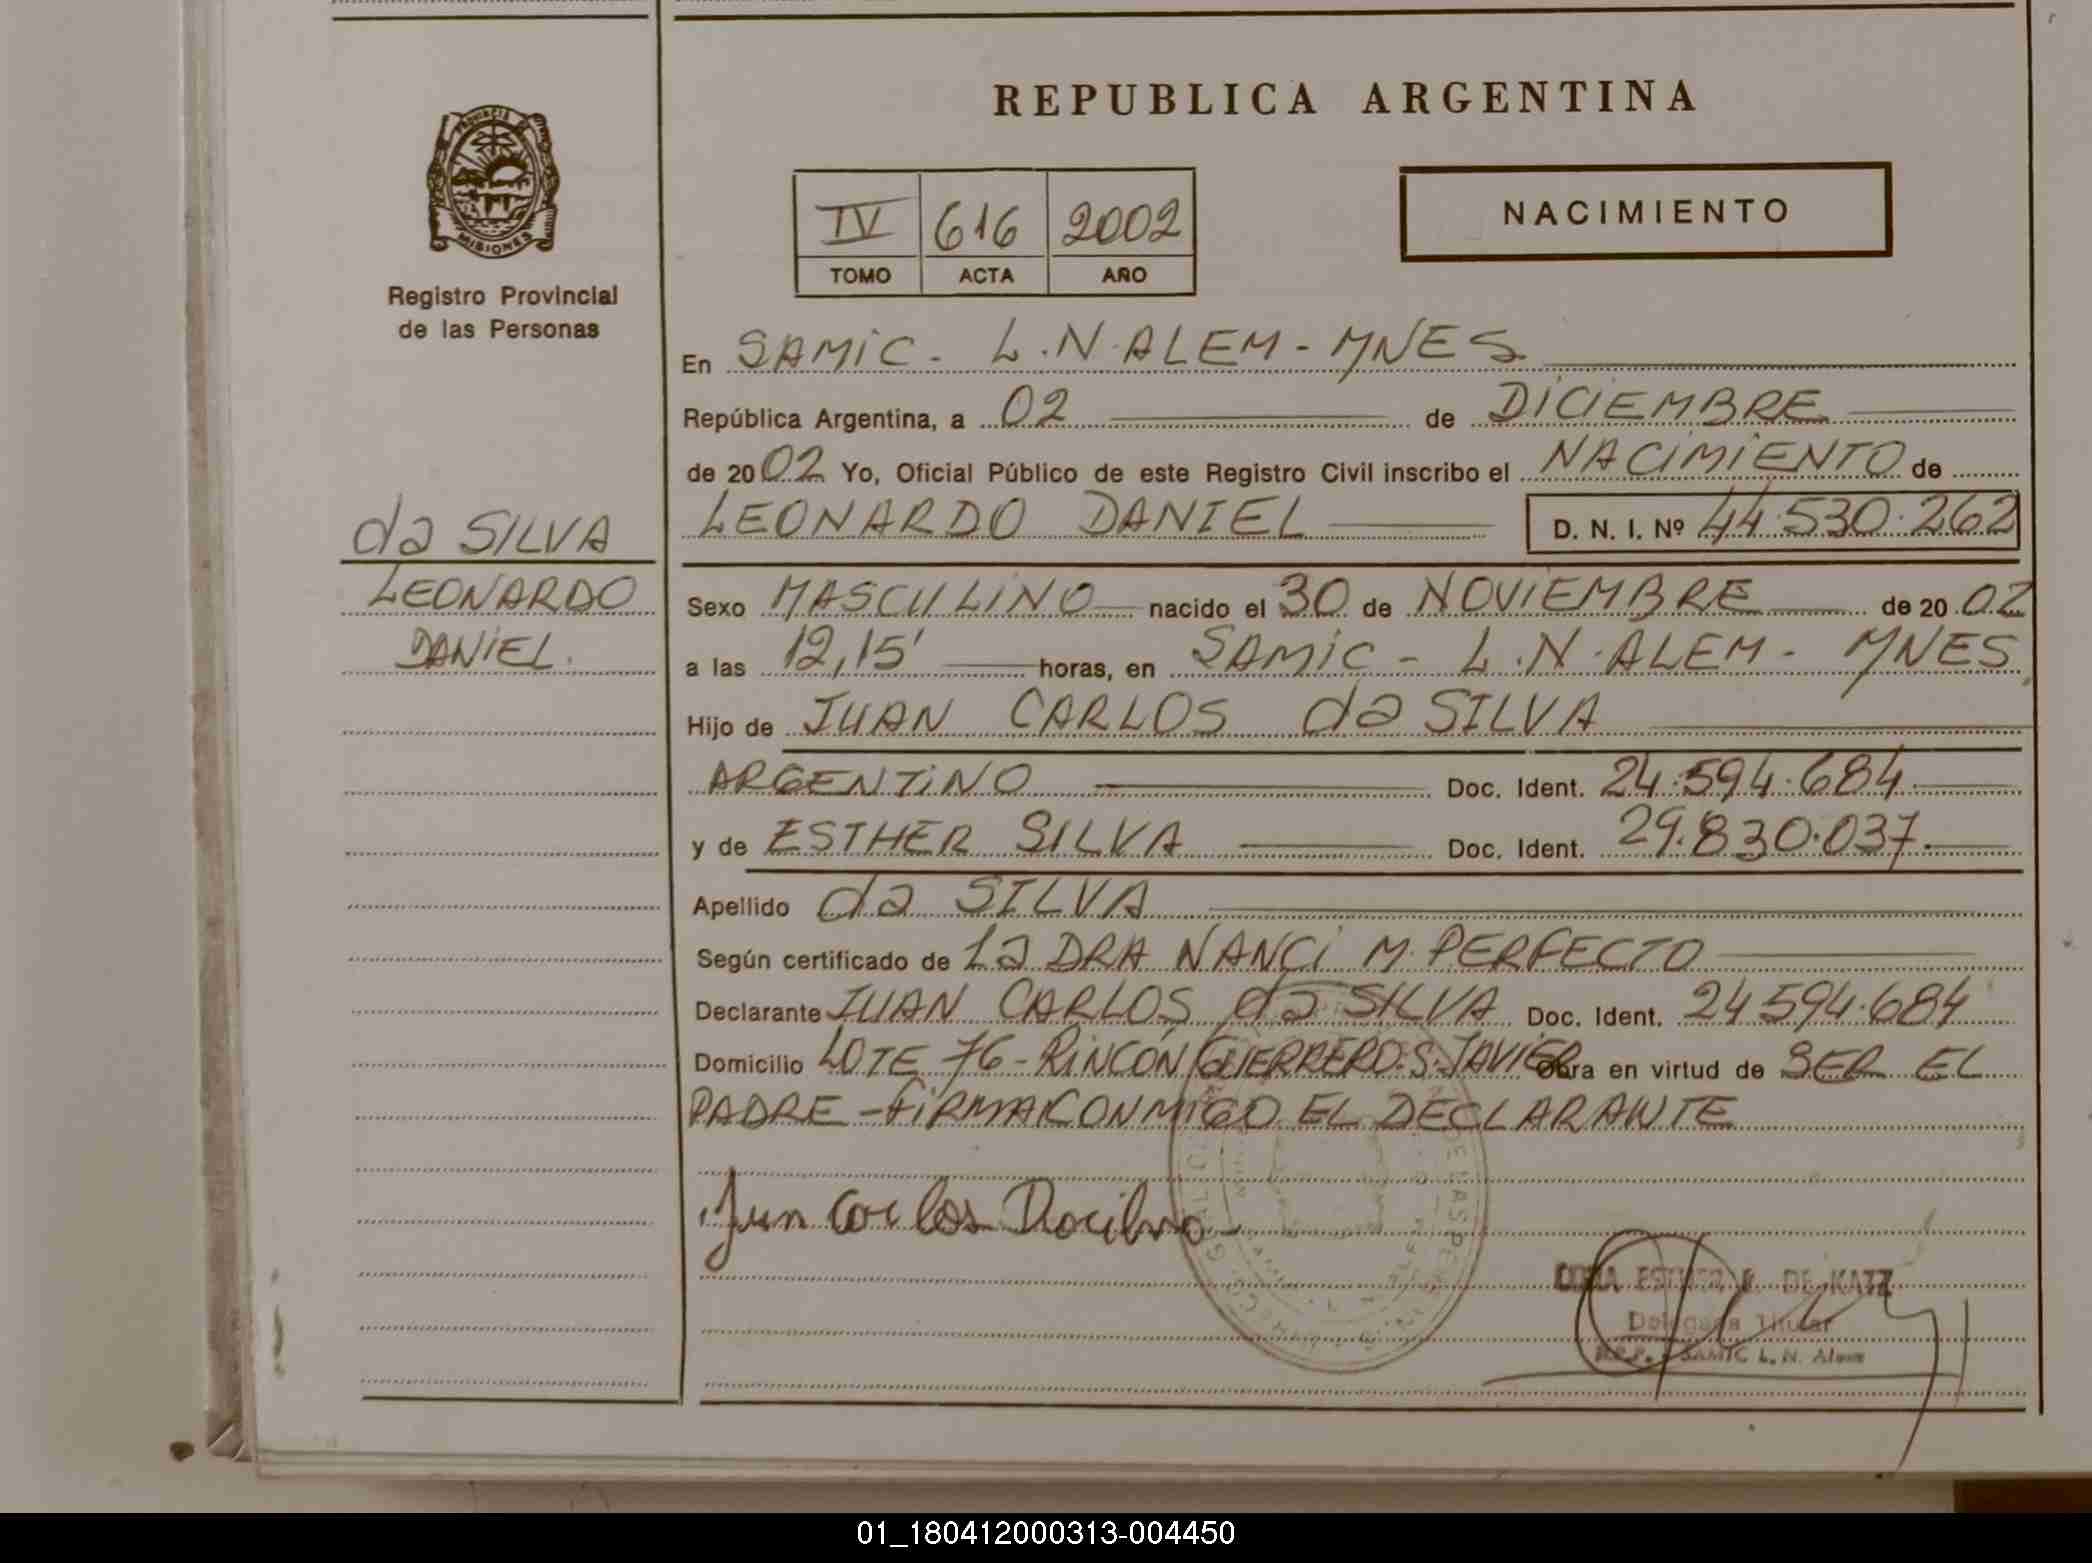 REPUBLICA ARGENTINA
PROVINCIA DE
MISIONES
Registro Provincial
de las Personas
IV 616 2002
TOMO ACTA AÑO
NACIMIENTO
En SAMIC - L.N. ALEM - MNES
República Argentina, a 02 de DICIEMBRE
de 2002 Yo, Oficial Público de este Registro Civil inscribo el NACIMIENTO de
LEONARDO DANIEL D. N. I. Nº 44.530.262
da SILVA
LEONARDO
DANIEL.
Sexo MASCULINO nacido el 30 de NOVIEMBRE de 20 02
a las 12,15' horas, en SAMIC - L.N. ALEM - MNES
Hijo de JUAN CARLOS da SILVA
ARGENTINO Doc. Ident. 24.594.684
y de ESTHER SILVA Doc. Ident. 29.830.037
Apellido da SILVA
Según certificado de La DRA NANCI M. PERFECTO
Declarante JUAN CARLOS da SILVA Doc. Ident. 24594.684
Domicilio LOTE 76 - RINCÓN GUERRERO. S. JAVIER Obra en virtud de SER EL
PADRE - FIRMA CONMIGO EL DECLARANTE
Jun Carlos Dacilva
ESTHER DE KATZ
Delegada Titular
R.P.P. - SAMIC L. N. Alem
01_180412000313-004450